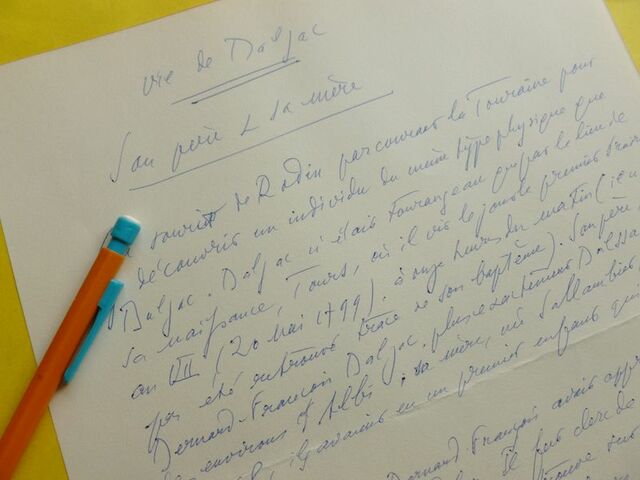 Vie de Balzac
Son père & sa mère
sourit de Rodin parcourant la Touraine pour
découvrir un individu du même type physique que
Balzac. Balzac n'était Tourangeau que par le lieu de
sa naissance, Tours, où il vit le jour le premier
an VII (20 Mai 1799), à onze heures du matin (
pas été retrouvé trace de son baptême). Son père,
Bernard-François Balzac, plus exactement Balssa
des environs d'Albi; sa mère, née Sallambier
ils avaient eu un premier enfant qui
Bernard-François avait
Il fut clerc de